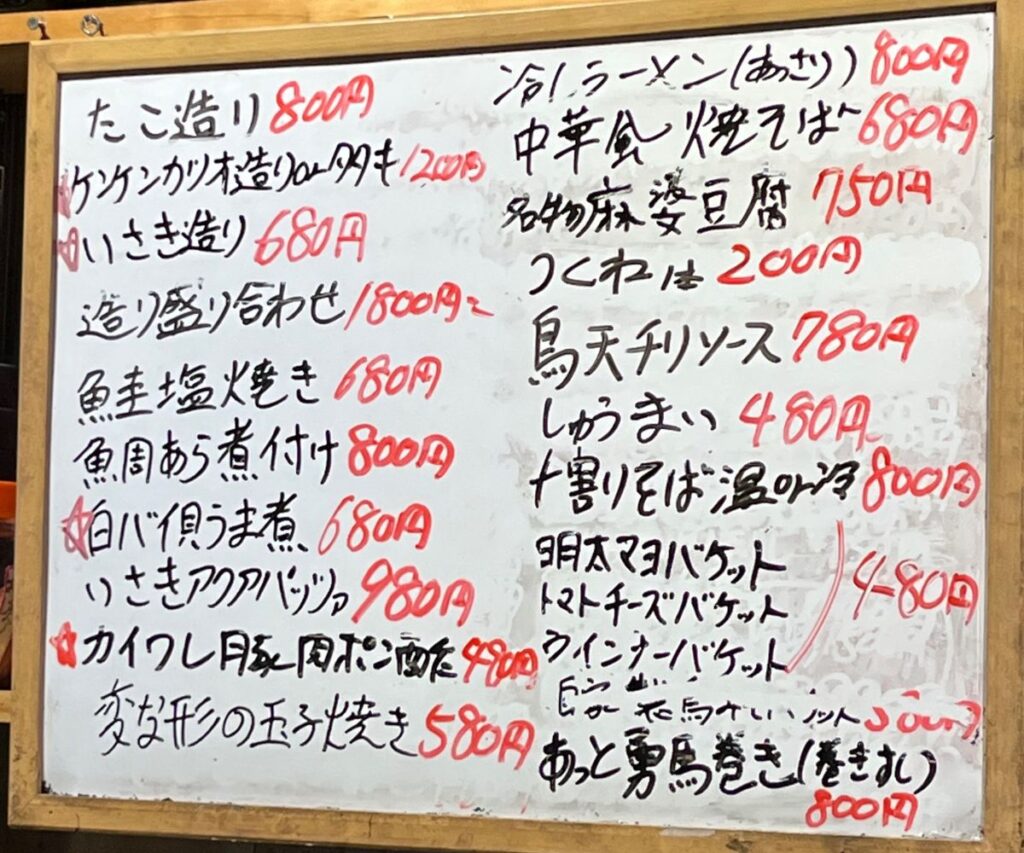 たこ造り 800円
☆ケンケンカツオ造りorタタキ 1200円
☆いさき造り 680円
造り盛り合わせ 1800円〜
鮭塩焼き 680円
鯛あら煮付け 800円
☆白バイ貝うま煮 680円
いさきアクアパッツァ 980円
☆カイワレ豚肉ポン酢 480円
変な形の玉子焼き 580円
冷しラーメン(あっさり) 800円
中華風焼そば 680円
名物麻婆豆腐 750円
つくね1本 200円
鳥天チリソース 780円
しゅうまい 480円
十割りそば温or冷 800円
明太マヨバケット
トマトチーズバケット 480円
ウインナーバケット
あっと勇馬巻き(巻きすし)
800円